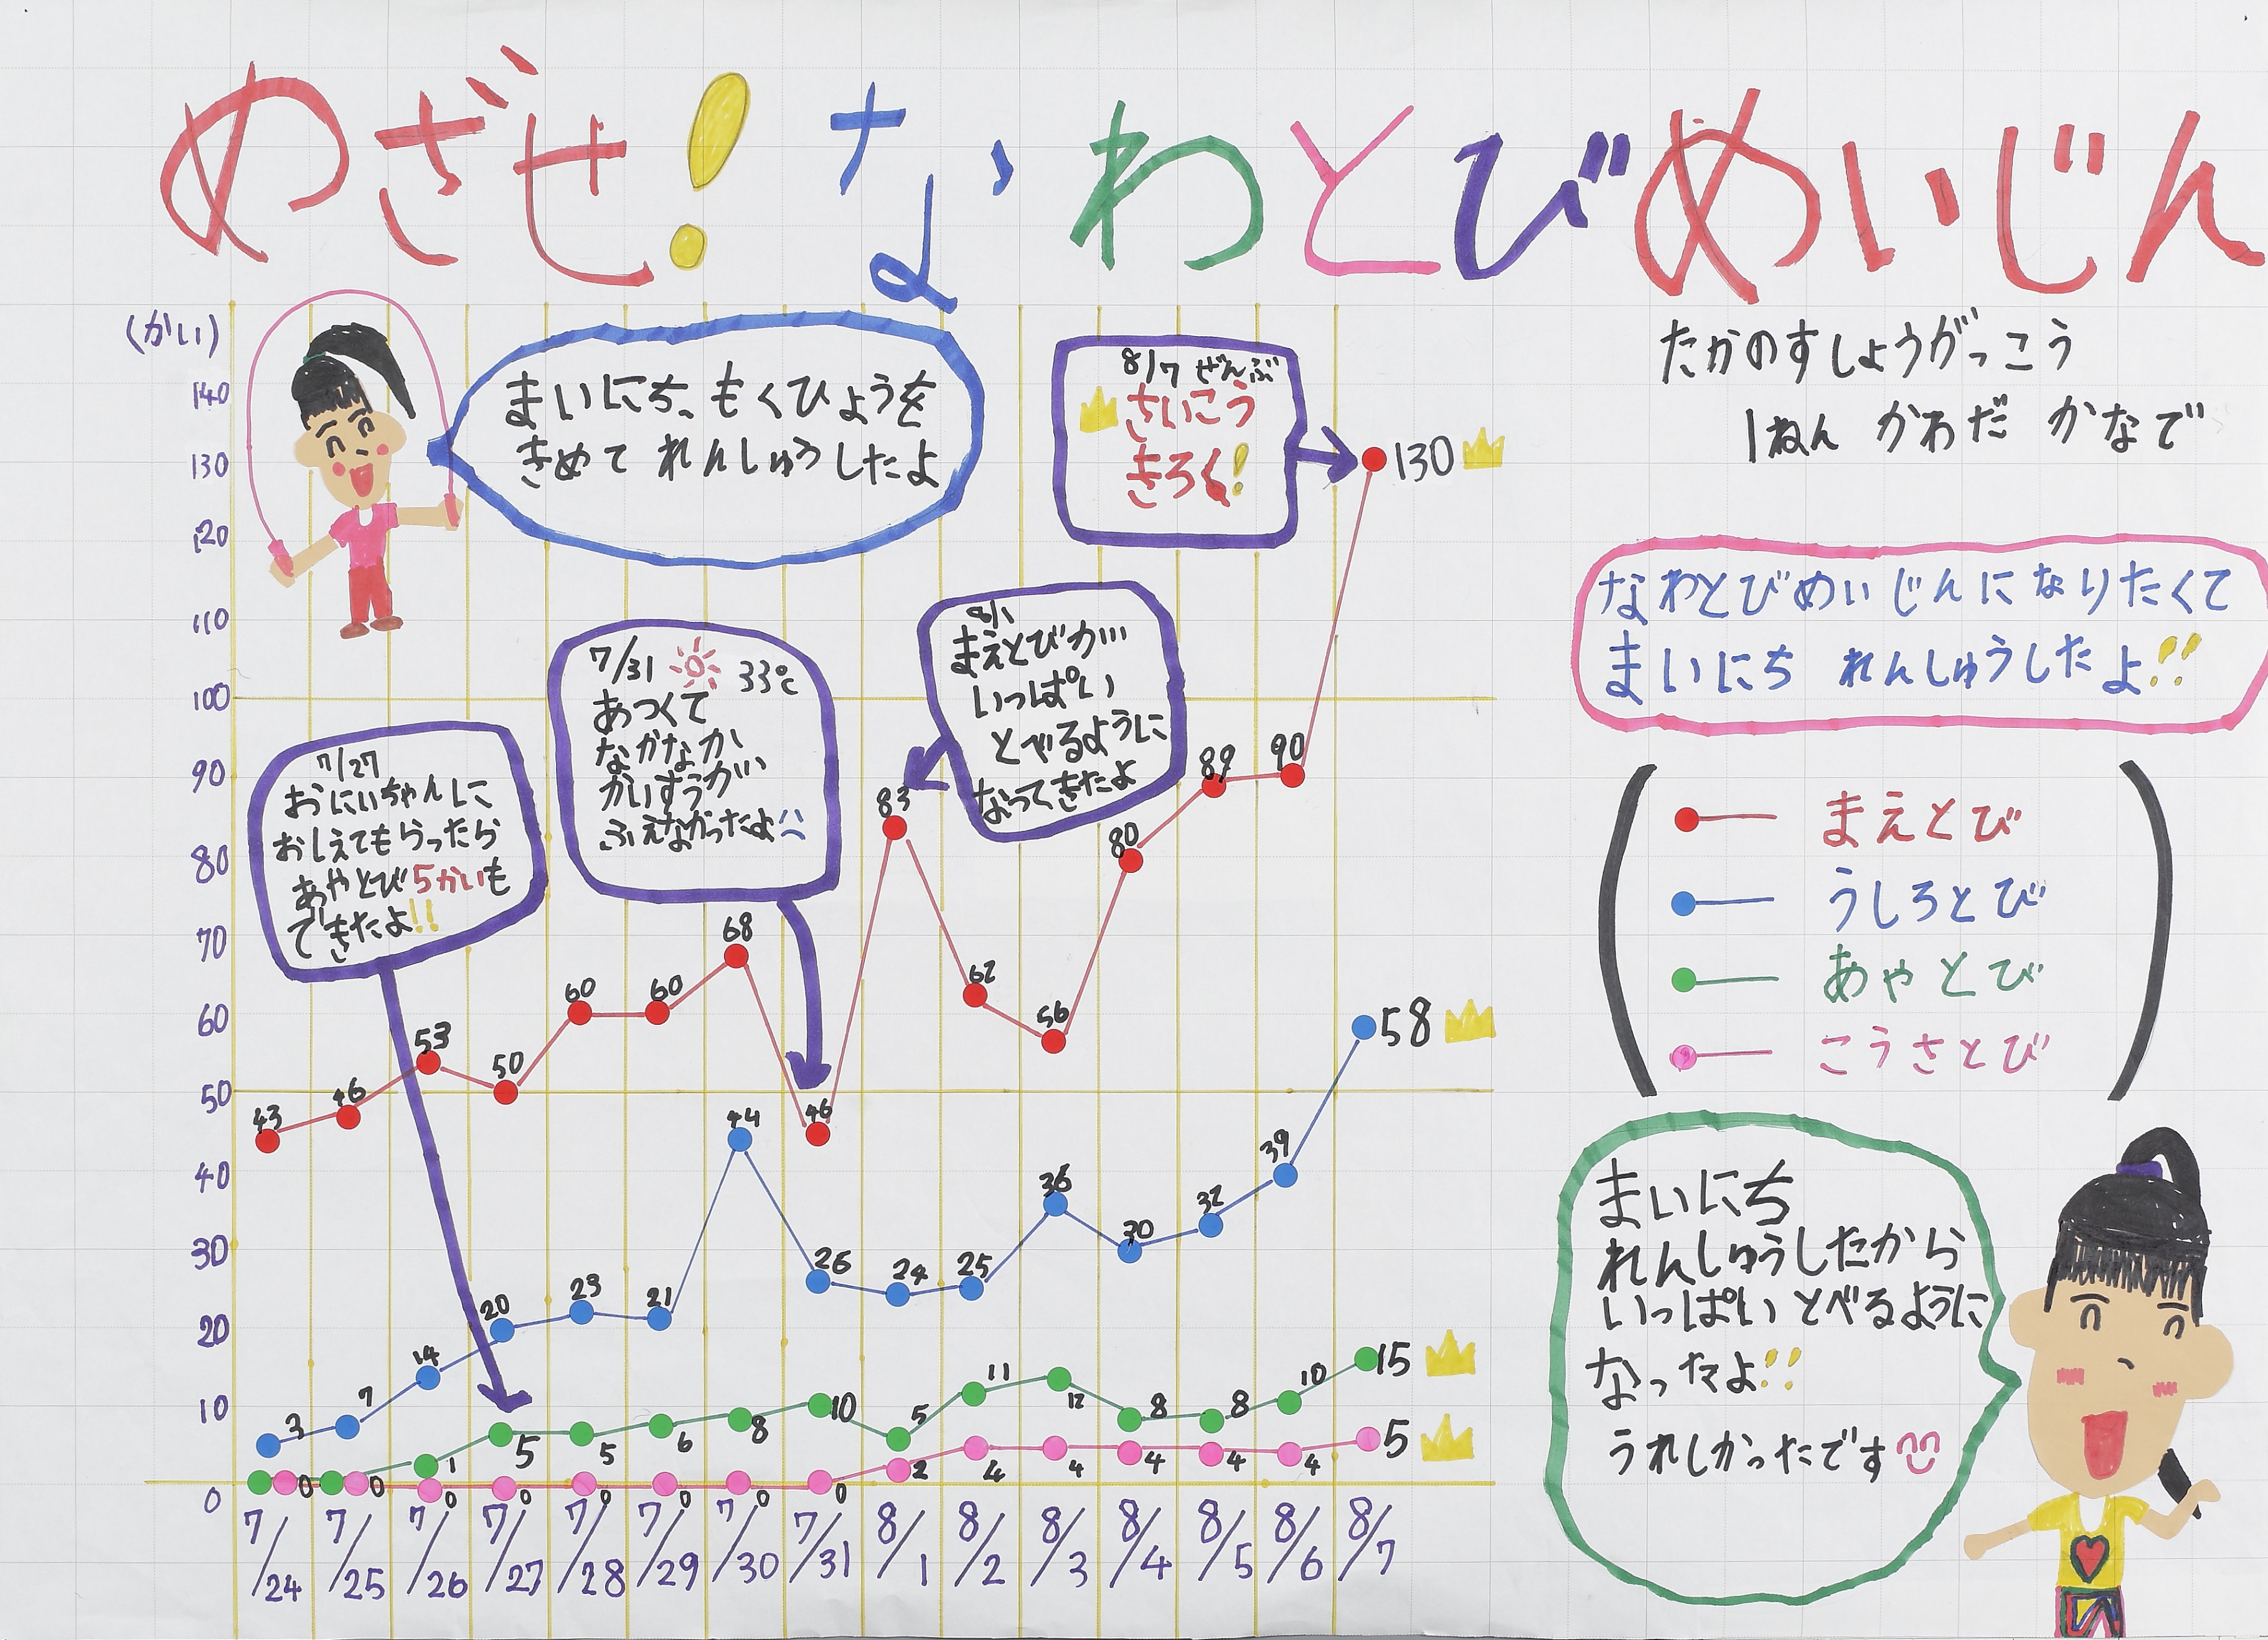 めざせ!なわとびめいじん
たかのすしょうがっこう
1ねん かわだ かなで
(かい)
まいにち、もくひょうを
きめて れんしゅうしたよ
8/7 ぜんぶ
さいこう
きろく!
なわとびめいじんになりたくて
まいにち れんしゅうしたよ!!
7/27
おにいちゃんに
おしえてもらったら
あやとび5かいも
できたよ!!
7/31 33℃
あつくて
なかなか
かいすうが
ふえなかったよ
8/1
まえとびが
いっぱい
とべるように
なってきたよ
まえとび
うしろとび
あやとび
こうさとび
まいにち
れんしゅうしたから
いっぱいとべるように
なったよ!!
うれしかったです
140
130
120
110
100
90
80
70
60
50
40
30
20
10
0
43 46 53 50 60 60 68 46 83 62 56 80 89 90 130
3 7 14 20 23 21 44 26 24 25 36 30 32 39 58
1 5 5 6 8 10 5 11 12 8 8 10 15
0 0 0 0 0 0 0 0 2 4 4 4 4 4 5
7/24 7/25 7/26 7/27 7/28 7/29 7/30 7/31 8/1 8/2 8/3 8/4 8/5 8/6 8/7